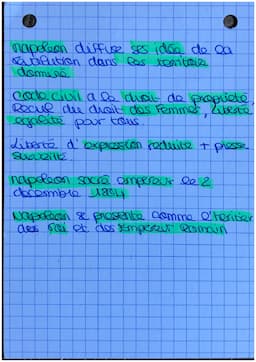 napoléon diffuse ses idée de la
révolution dans les territoire
dominé
code civil a le droit de propriété,
Recul du droit des Femmes, Liberté
egalité pour tous
Liberté d'expression reduite + presse
surveillé.
napoléon sacré empereur le 2
décembre 1804
Napoléon se presente comme l'héritier
des roi et des Empereur Romain